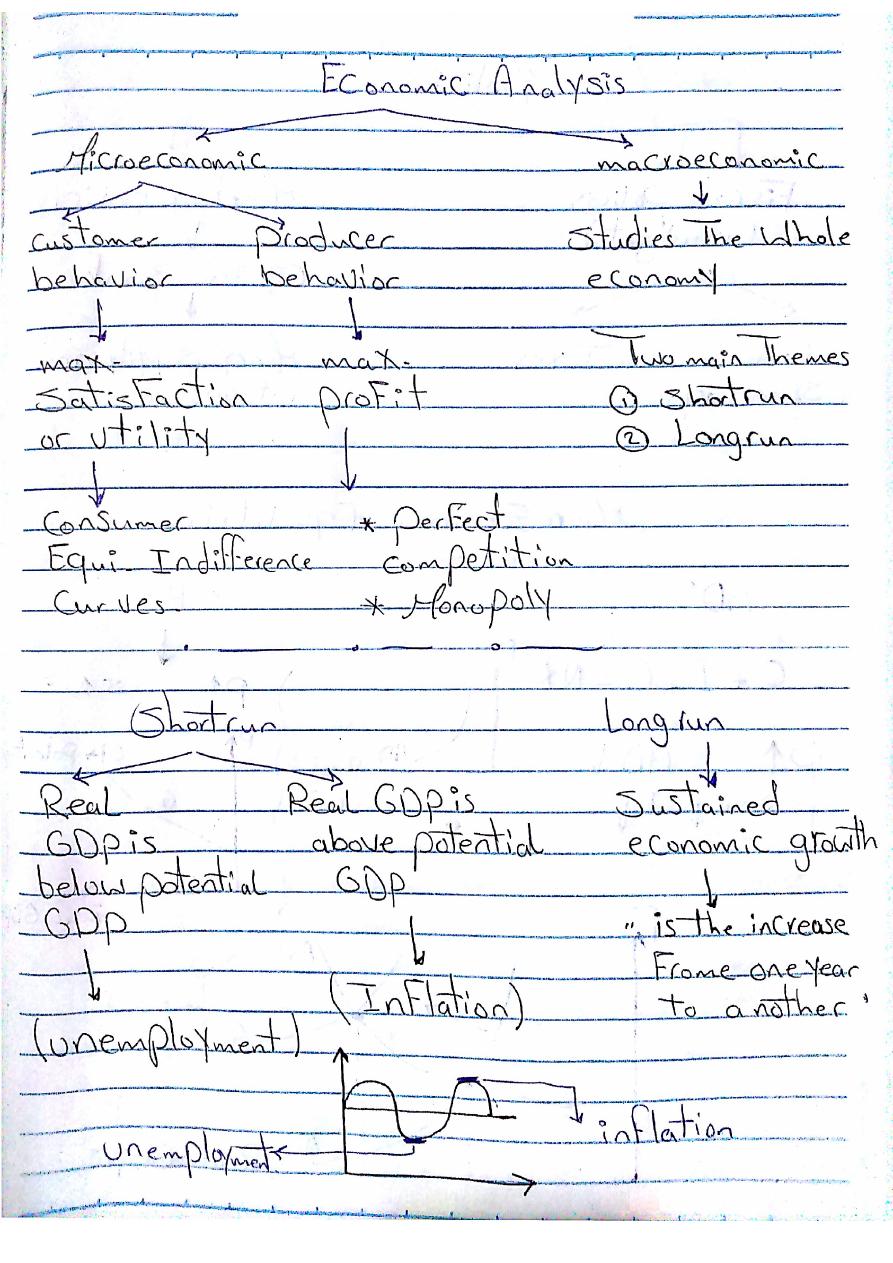 Economic Analysis
Microeconomic
macroeconomic
customer
behavior
producer
behavior
Studies The Whole
economy
max-
Satisfaction
or utility
max-
profit
Two main Themes
① Shortrun
② Longrun
Consumer
Equi- Indifference
Curves
* perfect
competition
* Monopoly
Shortrun
Longrun
Real
GDP is
below potential
GDP
Real GDP is
above potential
GDP
Sustained
economic growth
" is the increase
Frome one year
to another "
(unemployment)
(Inflation)
unemployment
inflation